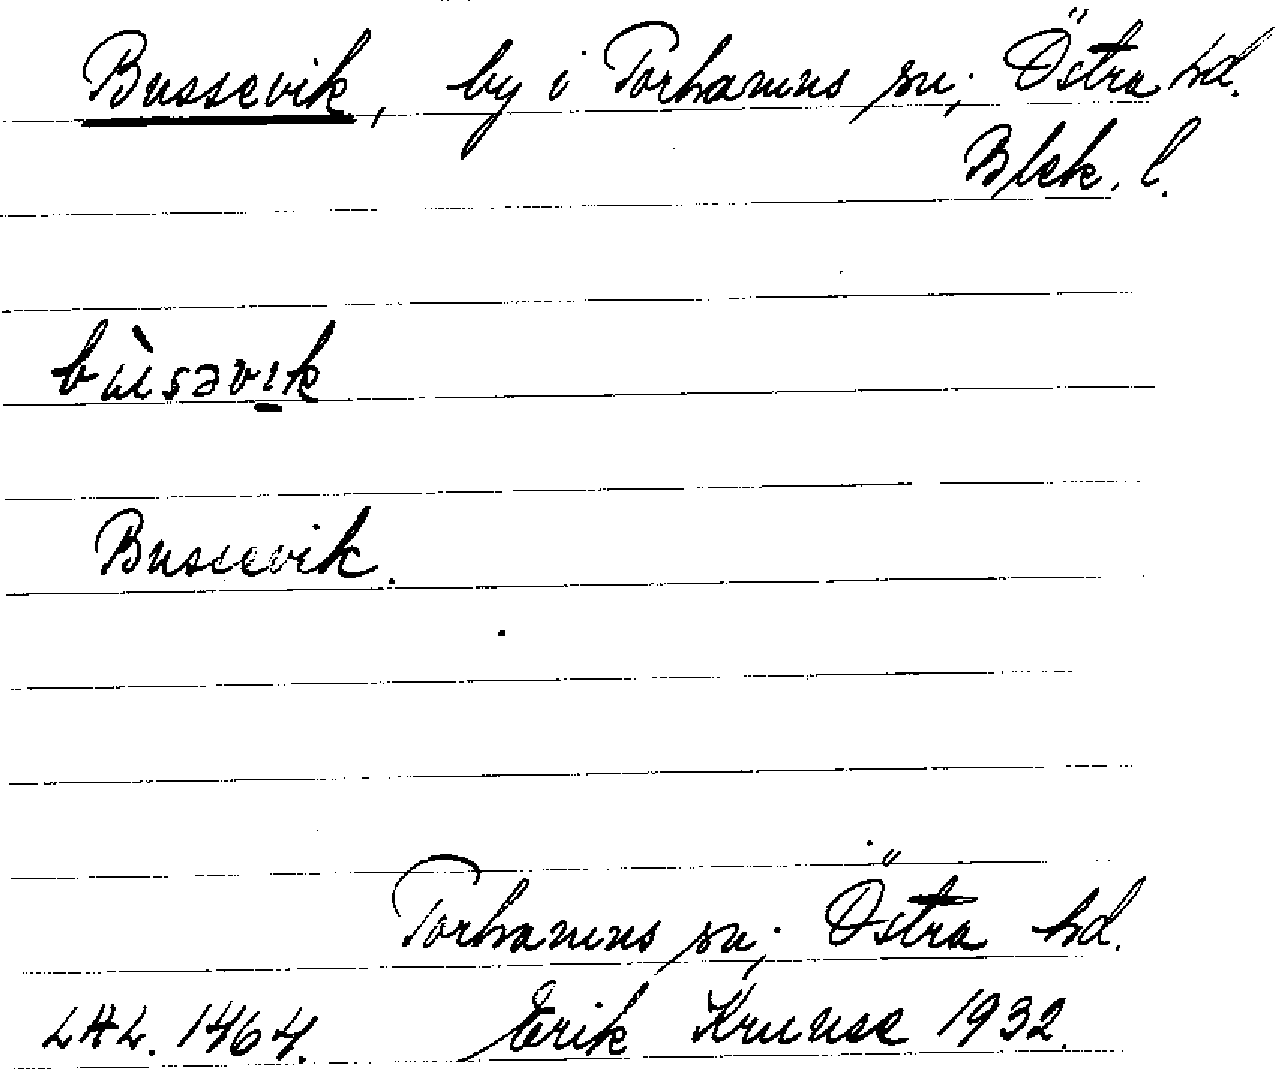 Bussevik, by i Torhamns sn; Östra hd.
Blek. l.
bùsəvık
Bussevik.
Torhamns sn; Östra hd.
LAL. 1464. Erik Kruuse 1932.